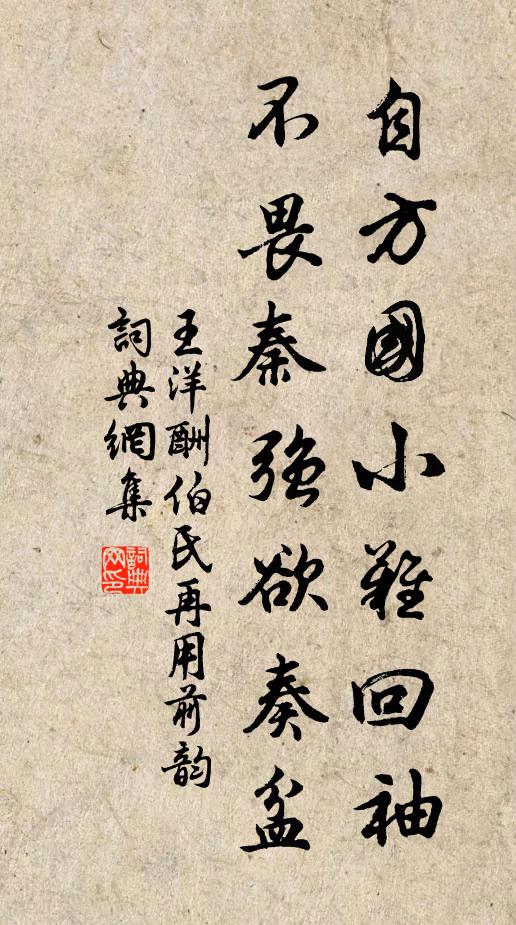 自方國小難回袖
不畏秦強欲奏盆
王洋酬伯氏再用前韵
詞典網集
詞典网印